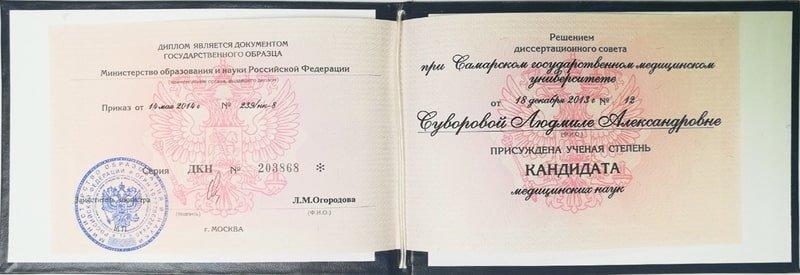 ДИПЛОМ ЯВЛЯЕТСЯ ДОКУМЕНТОМ
ГОСУДАРСТВЕННОГО ОБРАЗЦА
Министерство образования и науки Российской Федерации
Приказ от 14 мая 2014 г № 239/нк-8
Серия ДКН № 203868 *
Заместитель министра
Л.М.Огородова
(подпись) (Ф.И.О.)
М.П.
г. МОСКВА
Решением
диссертационного совета
при Самарском государственном медицинском
университете
от 18 декабря 2013 г № 12
Суворовой Людмиле Александровне
(Ф.И.О.)
ПРИСУЖДЕНА УЧЕНАЯ СТЕПЕНЬ
КАНДИДАТА
медицинских наук